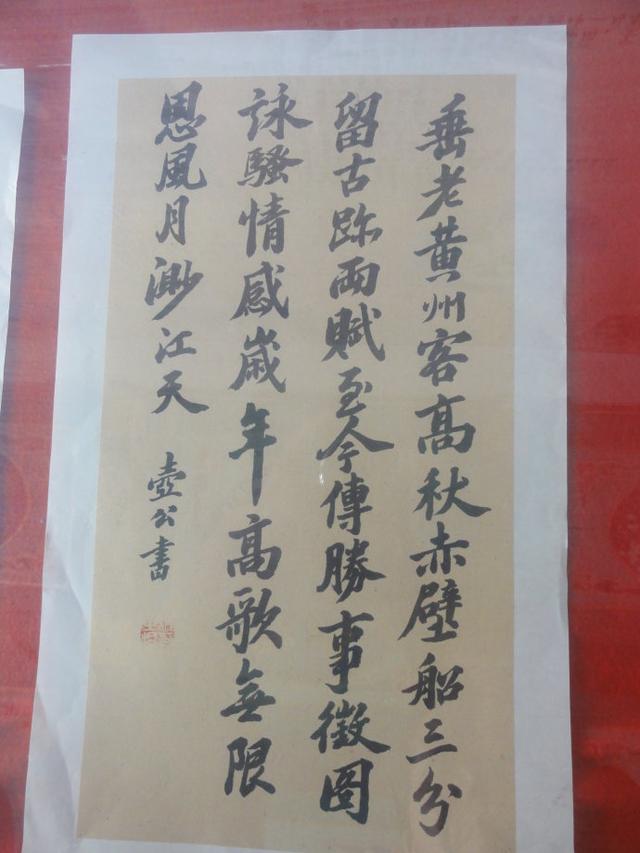 垂老黃州客高秋赤壁船三分
留古跡兩賦至今傳勝事徵圖
詠騷情感歲年高歌無限
恩風月渺江天
壺公書